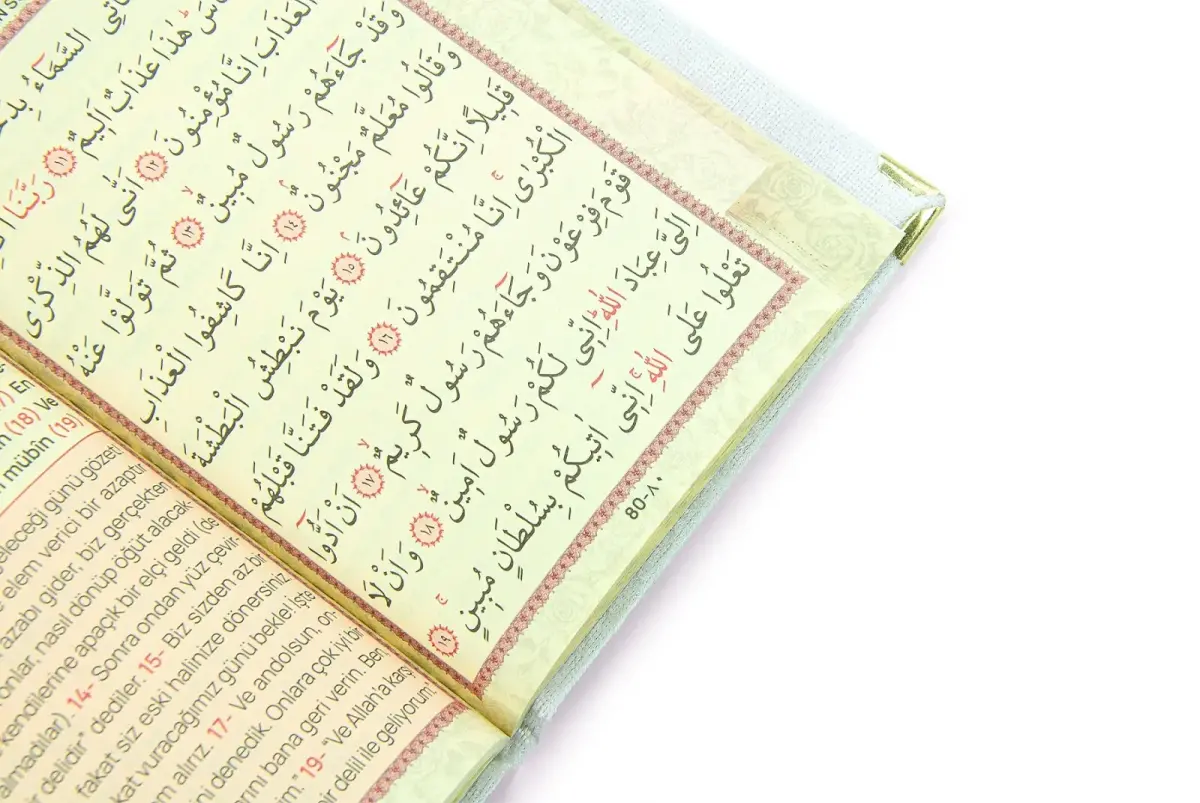 السَّمَٓاءُ
هٰذَا عَذَابٌ اَل۪يمٌ ﴿١١﴾ رَبَّنَا
الْعَذَابَ اِنَّا مُؤْمِنُونَ ﴿١٢﴾ اَنّٰى لَهُمُ الذِّكْرٰى
وَقَدْ جَٓاءَهُمْ رَسُولٌ مُب۪ينٌۙ ﴿١٣﴾ ثُمَّ تَوَلَّوْا عَنْهُ
وَقَالُوا مُعَلَّمٌ مَجْنُونٌۘ ﴿١٤﴾ اِنَّا كَاشِفُوا الْعَذَابِ
قَل۪يلاً اِنَّكُمْ عَٓائِدُونَۘ ﴿١٥﴾ يَوْمَ نَبْطِشُ الْبَطْشَةَ
الْكُبْرٰىۚ اِنَّا مُنْتَقِمُونَ ﴿١٦﴾ وَلَقَدْ فَتَنَّا قَبْلَهُمْ
قَوْمَ فِرْعَوْنَ وَجَٓاءَهُمْ رَسُولٌ كَر۪يمٌۙ ﴿١٧﴾ اَنْ اَدُّٓوا
اِلَيَّ عِبَادَ اللّٰهِؕ اِنّ۪ي لَكُمْ رَسُولٌ اَم۪ينٌۙ ﴿١٨﴾ وَاَنْ لَا
تَعْلُوا عَلَى اللّٰهِۚ اِنّ۪ٓي اٰت۪يكُمْ بِسُلْطَانٍ مُب۪ينٍۚ ﴿١٩﴾
80-٨٠
En
(18) Ve
mübin (19)
eleceği günü gözet
elem verici bir azaptır
azabı gider, biz gerçekten
onlar, nasıl dönüp öğüt alacak-
kendilerine apaçık bir elçi geldi (de
almadılar). 14- Sonra ondan yüz çevir-
delidir" dediler. 15- Biz sizden az bir
fakat siz eski halinize dönersiniz
kat vuracağımız günü bekle! İşte
alırız. 17- Ve andolsun, on-
ni denedik. Onlara çok iyi bir
arını bana geri verin. Ben,
im." 19- "Ve Allah'a karşı
bir delil ile geliyorum."